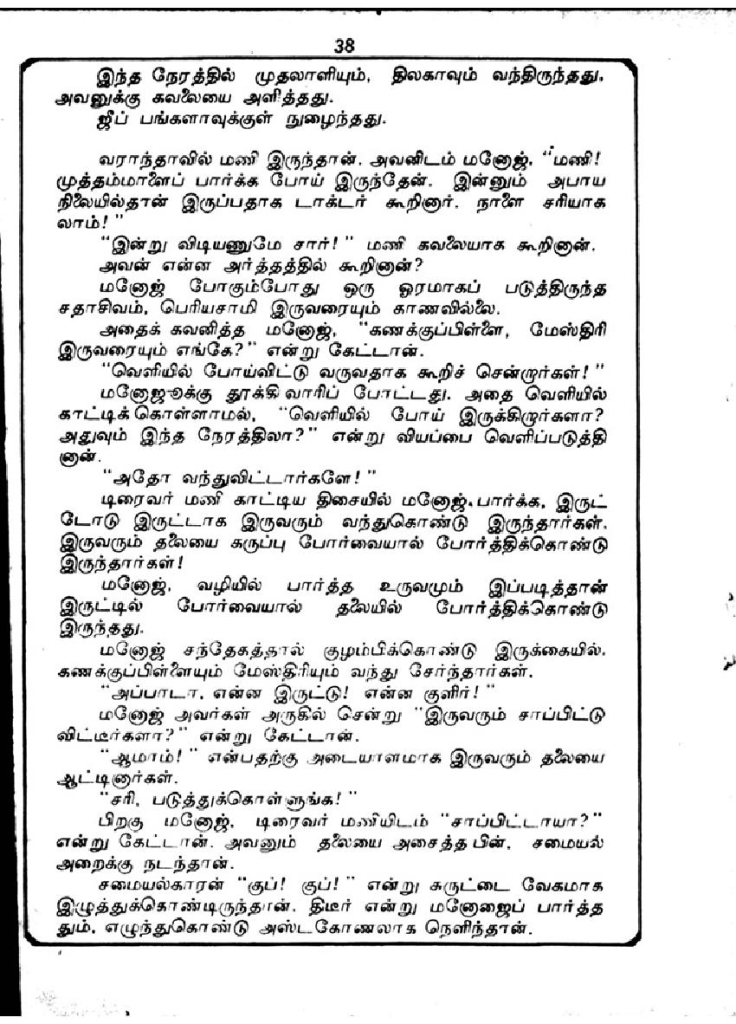 38
இந்த நேரத்தில் முதலாளியும், திலகாவும் வந்திருந்தது,
அவனுக்கு கவலையை அளித்தது.
ஜீப் பங்களாவுக்குள் நுழைந்தது.
வராந்தாவில் மணி இருந்தான். அவனிடம் மனோஜ், “மணி!
முத்தம்மாளைப் பார்க்க போய் இருந்தேன். இன்னும் அபாய
நிலையில்தான் இருப்பதாக டாக்டர் கூறினார். நாளை சரியாக
லாம்!”
“இன்று விடியணுமே சார்!” மணி கவலையாக கூறினான்.
அவன் என்ன அர்த்தத்தில் கூறினான்?
மனோஜ் போகும்போது ஒரு ஓரமாகப் படுத்திருந்த
சதாசிவம், பெரியசாமி இருவரையும் காணவில்லை.
அதைக் கவனித்த மனோஜ், “கணக்குப்பிள்ளை, மேஸ்திரி
இருவரையும் எங்கே?” என்று கேட்டான்.
“வெளியில் போய்விட்டு வருவதாக கூறிச் சென்றார்கள்!”
மனோஜுக்கு தூக்கி வாரிப் போட்டது. அதை வெளியில்
காட்டிக் கொள்ளாமல், “வெளியில் போய் இருக்கிறார்களா?
அதுவும் இந்த நேரத்திலா?” என்று வியப்பை வெளிப்படுத்தி
னான்.
“அதோ வந்துவிட்டார்களே!”
டிரைவர் மணி காட்டிய திசையில் மனோஜ், பார்க்க, இருட்
டோடு இருட்டாக இருவரும் வந்துகொண்டு இருந்தார்கள்.
இருவரும் தலையை கருப்பு போர்வையால் போர்த்திக்கொண்டு
இருந்தார்கள்!
மனோஜ், வழியில் பார்த்த உருவமும் இப்படித்தான்
இருட்டில் போர்வையால் தலையில் போர்த்திக்கொண்டு
இருந்தது.
மனோஜ் சந்தேகத்தால் குழம்பிக்கொண்டு இருக்கையில்,
கணக்குப்பிள்ளையும் மேஸ்திரியும் வந்து சேர்ந்தார்கள்.
“அப்பாடா, என்ன இருட்டு! என்ன குளிர்!”
மனோஜ் அவர்கள் அருகில் சென்று “இருவரும் சாப்பிட்டு
விட்டீர்களா?” என்று கேட்டான்.
“ஆமாம்!” என்பதற்கு அடையாளமாக இருவரும் தலையை
ஆட்டினார்கள்.
“சரி, படுத்துக்கொள்ளுங்க!”
பிறகு மனோஜ், டிரைவர் மணியிடம் “சாப்பிட்டாயா?”
என்று கேட்டான். அவனும் தலையை அசைத்த பின், சமையல்
அறைக்கு நடந்தான்.
சமையல்காரன் “குப்! குப்!” என்று சுருட்டை வேகமாக
இழுத்துக்கொண்டிருந்தான். திடீர் என்று மனோஜைப் பார்த்த
தும், எழுந்துகொண்டு அஸ்டகோணலாக நெளிந்தான்.